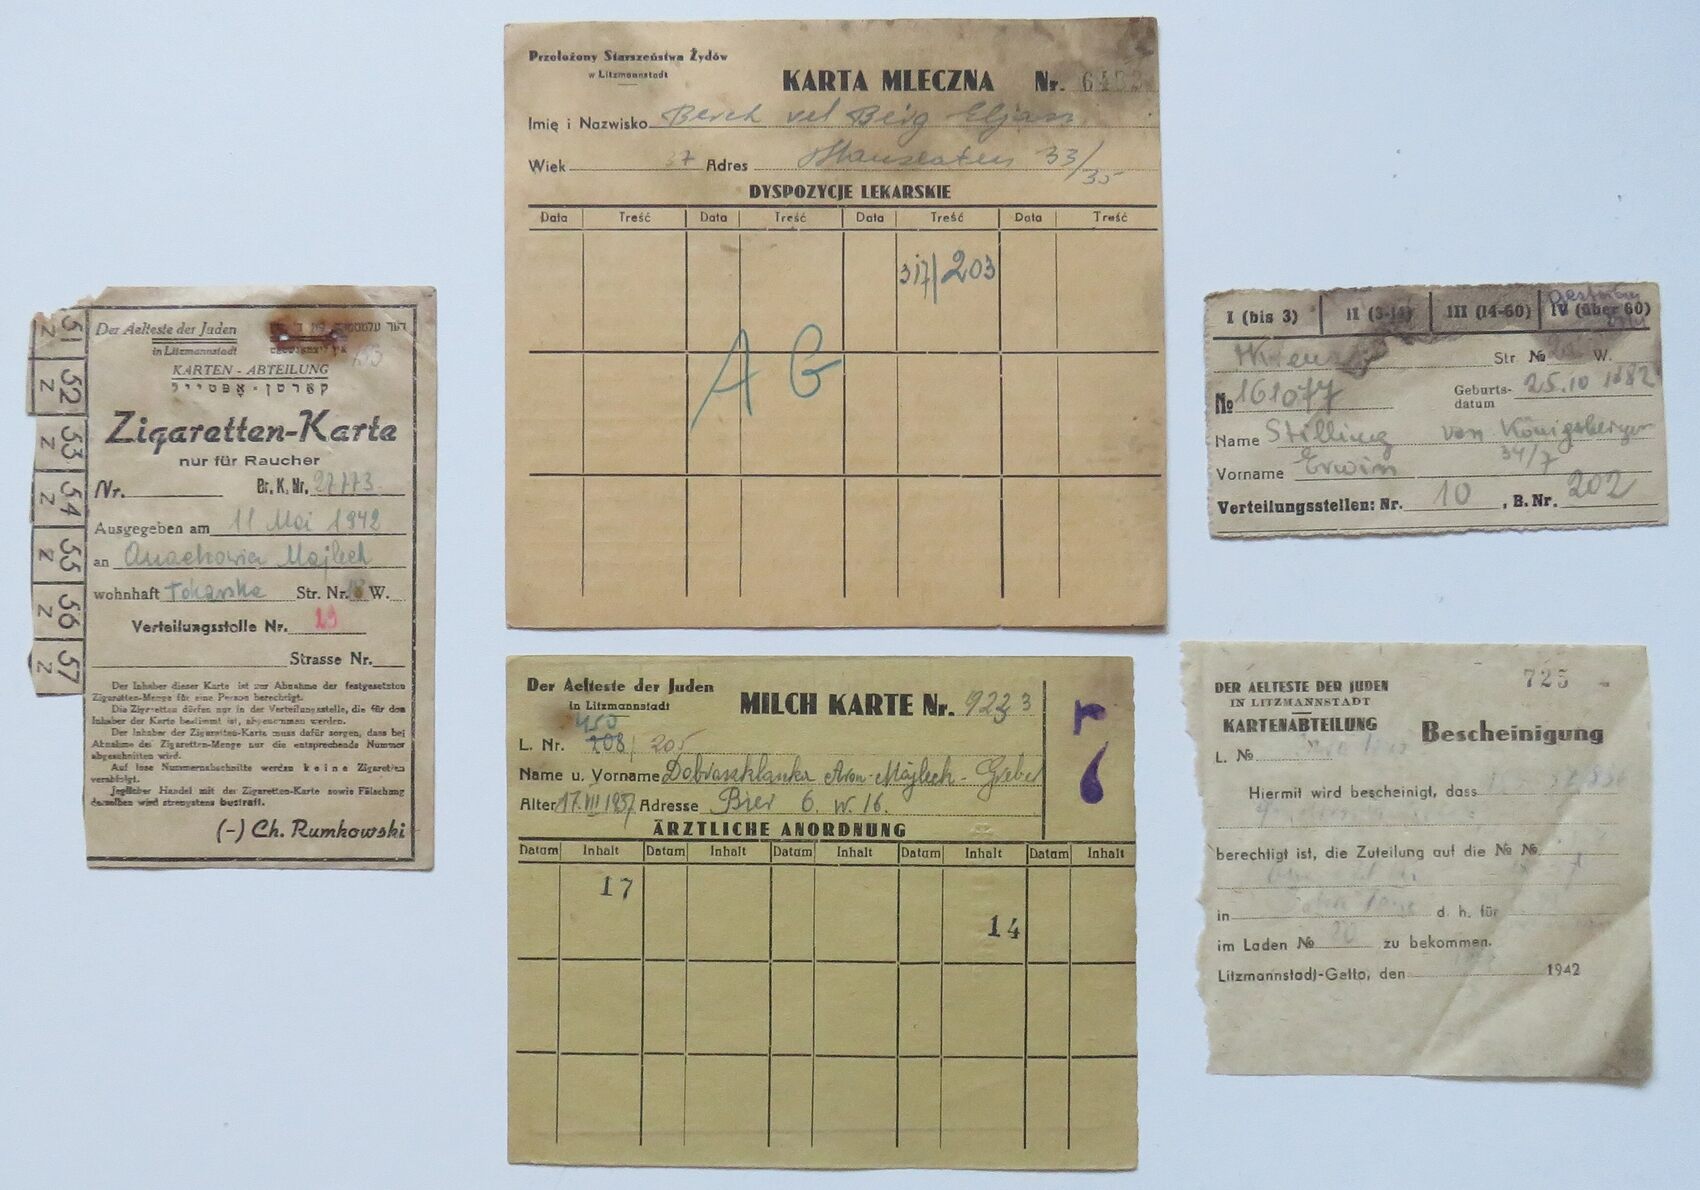 Der Aelteste der Juden
in Litzmannstadt
KARTEN - ABTEILUNG
קארטן-אפטייל
Zigaretten-Karte
nur für Raucher
Nr. Br. K. Nr. 27773
Ausgegeben am 11 Mai 1942
an Majlech
wohnhaft Tokarska Str. Nr. 18 W.
Verteilungsstelle Nr. 29
Strasse Nr.
Der Inhaber dieser Karte ist zur Abnahme der festgesetzten
Zigaretten-Menge für eine Person berechtigt.
Die Zigaretten dürfen nur in der Verteilungsstelle, die für den
Inhaber der Karte bestimmt ist, abgenommen werden.
Der Inhaber der Zigaretten-Karte muss dafür sorgen, dass bei
Abnahme der Zigaretten-Menge nur die entsprechende Nummer
abgeschnitten wird.
Auf lose Nummernabschnitte werden keine Zigaretten
verabfolgt.
Jeglicher Handel mit der Zigaretten-Karte sowie Fälschung
derselben wird strengstens bestraft.
(-) Ch. Rumkowski
51 Z
52 Z
53 Z
54 Z
55 Z
56 Z
57 Z
Przełożony Starszeństwa Żydów
w Litzmannstadt
KARTA MLECZNA Nr.
Imię i Nazwisko Berek vel Berg Eljasz
Wiek 37 Adres Hanseaten 33/35
DYSPOZYCJE LEKARSKIE
Data Treść Data Treść Data Treść Data Treść
317/203
A G
Der Aelteste der Juden
in Litzmannstadt
MILCH KARTE Nr. 9233
450
L. Nr. 208/205
Name u. Vorname Aron-Majlech-
Alter 17.VII 1937 Adresse Bier 6. W. 16.
r
6
ÄRZTLICHE ANORDNUNG
Datum Inhalt Datum Inhalt Datum Inhalt Datum Inhalt Datum Inhalt
17
14
I (bis 3) II (3-14) III (14-60) IV (über 60)
gestorben
Str № W.
№ 161077 Geburts-
datum 25.10 1882
Name Stilling von Königsberger
Vorname Erwin 34/7
Verteilungsstellen: Nr. 10, B. Nr. 202
725
DER AELTESTE DER JUDEN
IN LITZMANNSTADT
KARTENABTEILUNG
Bescheinigung
L. №
Hiermit wird bescheinigt, dass
berechtigt ist, die Zuteilung auf die № №
in d. h. für
im Laden № 20 zu bekommen.
Litzmannstadt-Getto, den 1942